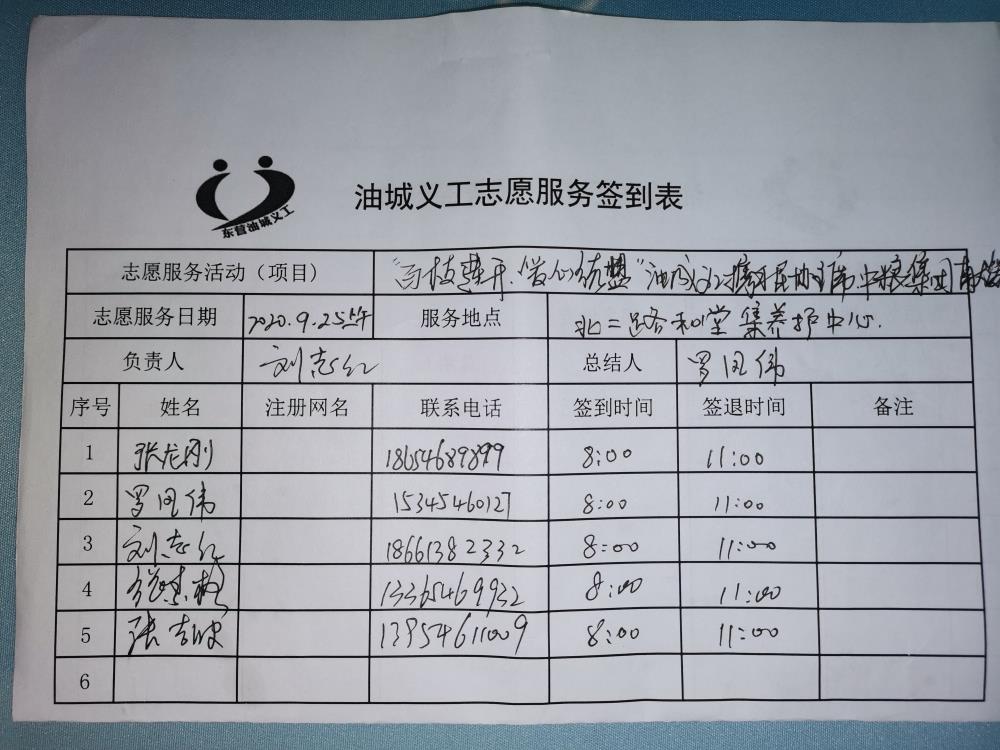 东营油城义工
油城义工志愿服务签到表
志愿服务活动（项目） "百枝莲开.爱心统盟"油城义工携手 中粮集团
志愿服务日期 2020.9.25 服务地点 北二路和堂集养护中心.
负责人 刘志红 总结人 罗同伟
序号 姓名 注册网名 联系电话 签到时间 签退时间 备注
1 张龙刚 18654689899 8:00 11:00
2 罗同伟 15345460127 8:00 11:00
3 刘志红 18661382332 8:00 11:00
4 13365469932 8:00 11:00
5 张 13954611009 8:00 11:00
6